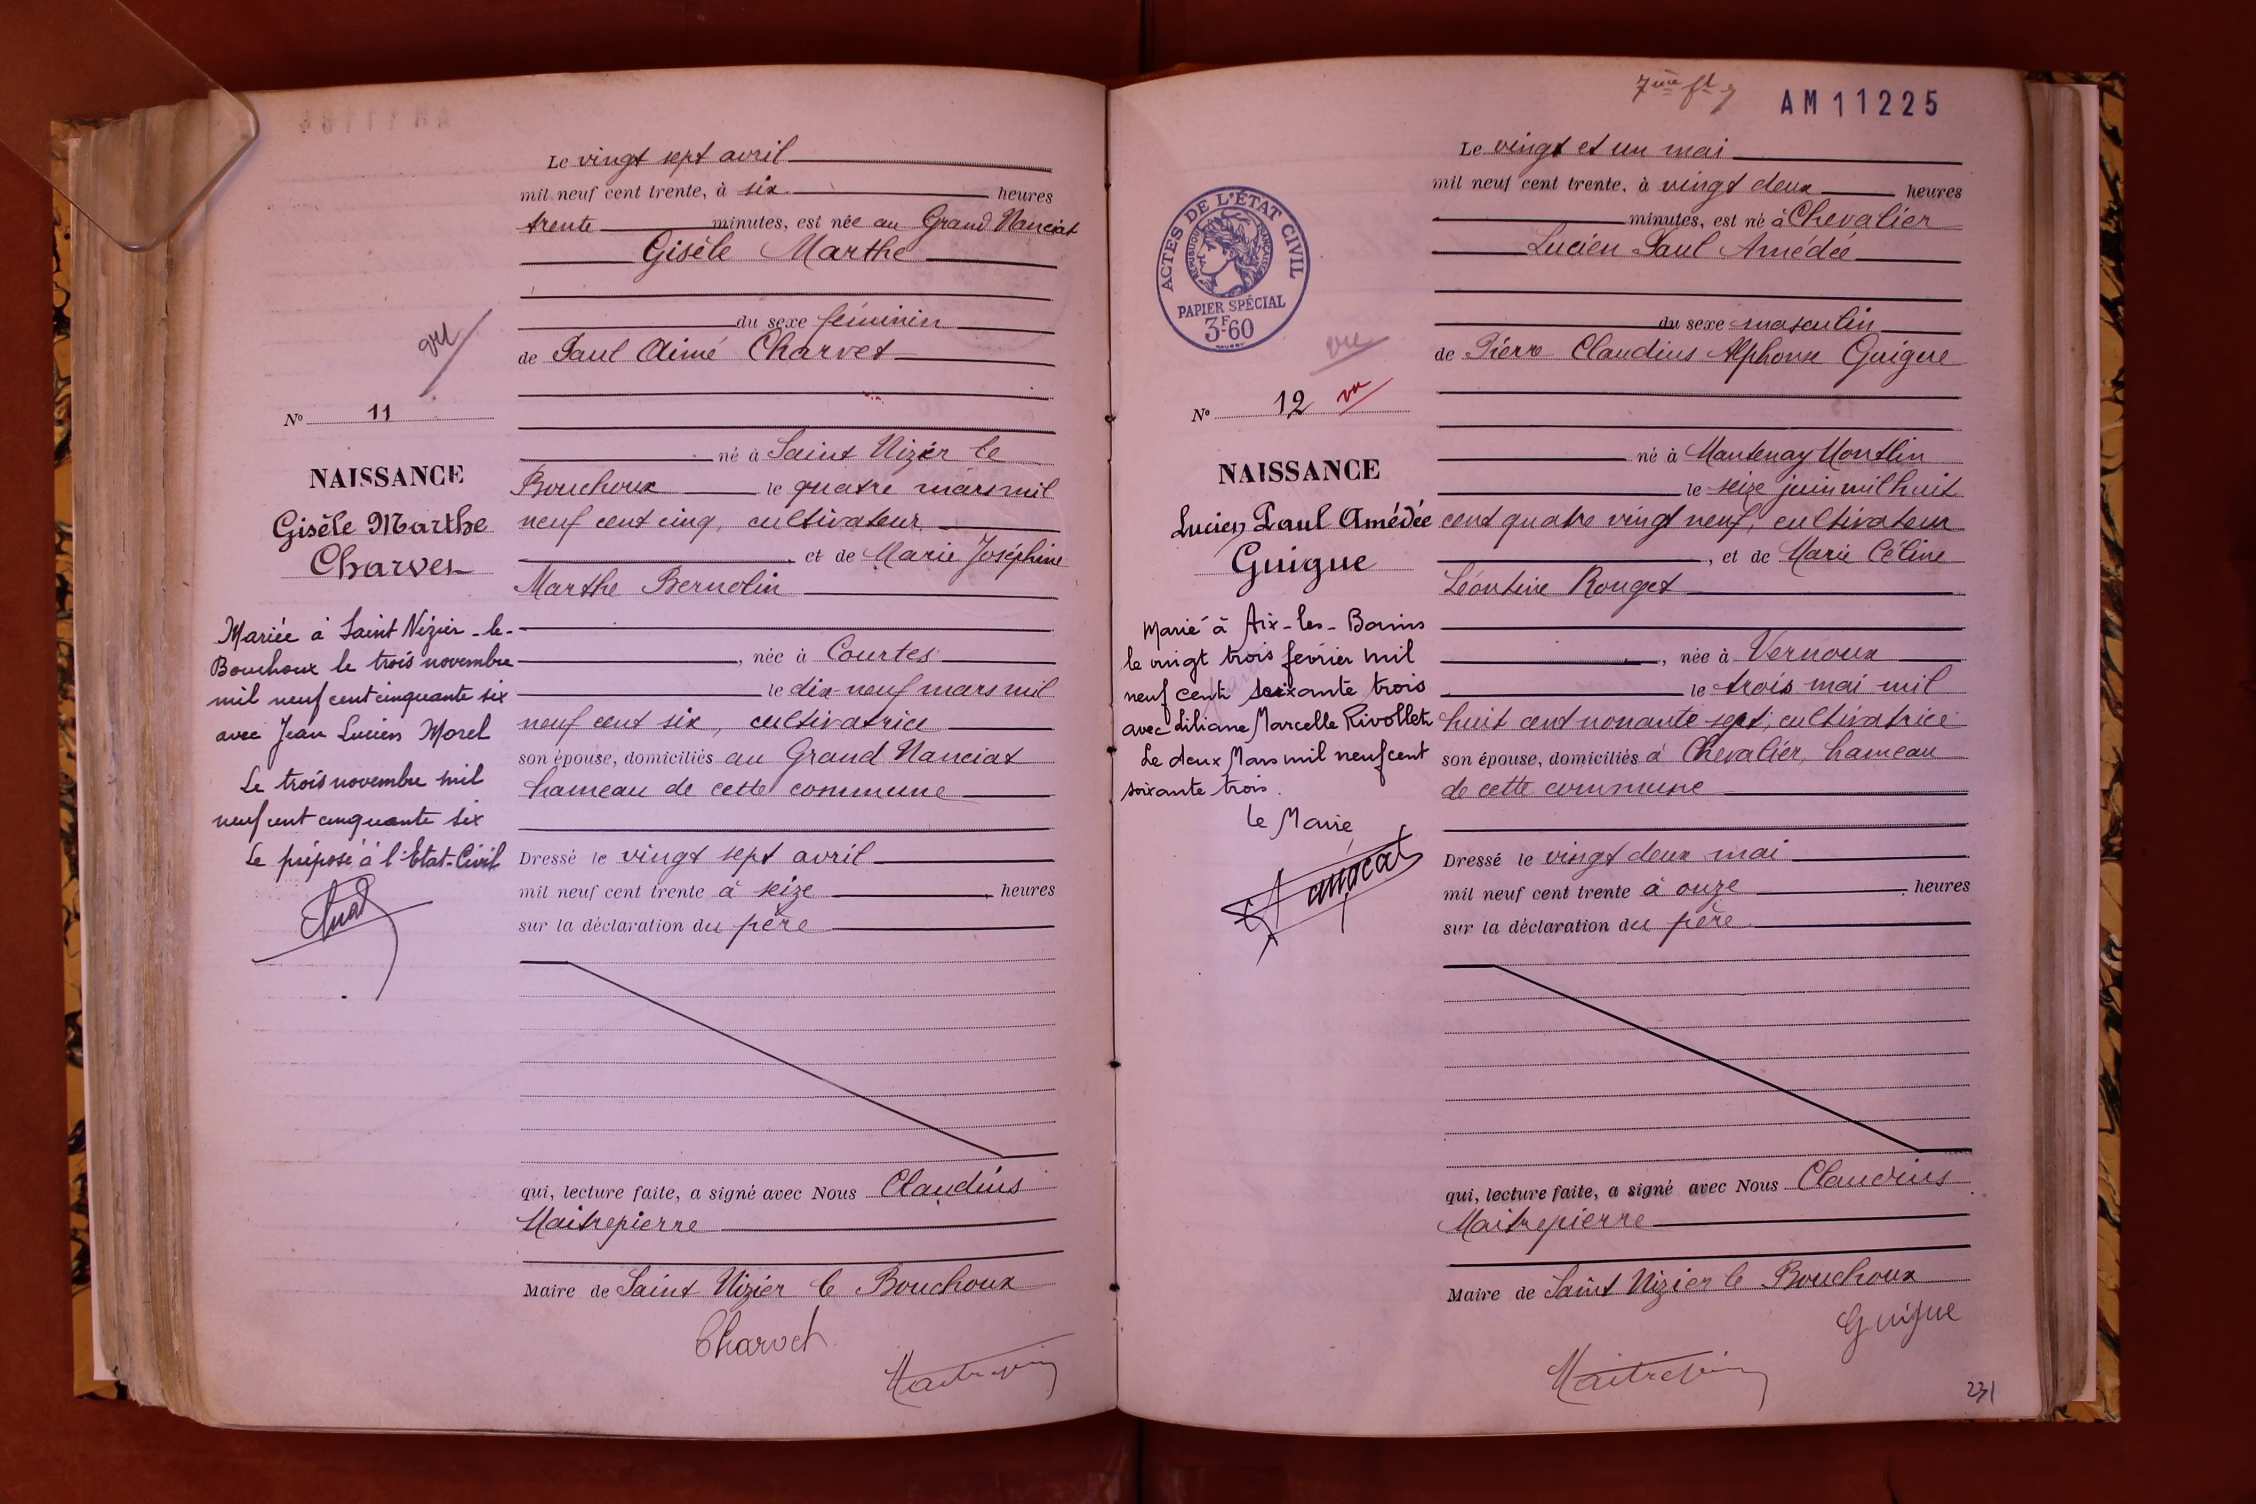 Le vingt sept avril
mil neuf cent trente, à six heures
trente minutes, est née au Grand Nanciat
Gisèle Marthe
du sexe féminin
vu
de Paul Aimé Charvet
N° 11
né à Saint Nizier le
Bouchoux le quatre mars mil
neuf cent cinq, cultivateur
, et de Marie Joséphine
Marthe Bernolin
, née à Courtes
le dix-neuf mars mil
neuf cent six, cultivatrice
son épouse, domiciliés au Grand Nanciat
hameau de cette commune
Dressé le vingt sept avril
mil neuf cent trente à seize heures
sur la déclaration du père
qui, lecture faite, a signé avec Nous Claudius
Maitrepierre
Maire de Saint Nizier le Bouchoux
Charvet
NAISSANCE
Gisèle Marthe
Charvet
Mariée à Saint Nizier-le-
Bouchoux le trois novembre
mil neuf cent cinquante six
avec Jean Lucien Morel
Le trois novembre mil
neuf cent cinquante six
Le préposé à l'Etat-Civil
7ème ft
AM11225
Le vingt et un mai
mil neuf cent trente, à vingt deux heures
minutes, est né à Chevalier
Lucien Paul Amédée
du sexe masculin
ACTES DE L'ÉTAT CIVIL
RÉPUBLIQUE FRANÇAISE
PAPIER SPÉCIAL
3F.60
vu
de Pierre Claudius Alphonse Guigue
N° 12 vu
né à Mantenay Montlin
le seize juin mil huit
cent quatre vingt neuf, cultivateur
, et de Marie Céline
Léontine Rouget
, née à Vernoux
le trois mai mil
huit cent nonante sept, cultivatrice
son épouse, domiciliés à Chevalier, hameau
de cette commune
Dressé le vingt deux mai
mil neuf cent trente à onze heures
sur la déclaration du père
qui, lecture faite, a signé avec Nous Claudius
Maitrepierre
Maire de Saint Nizier le Bouchoux
Guigue
NAISSANCE
Lucien Paul Amédée
Guigue
Marié à Aix-les-Bains
le vingt trois février mil
neuf cent soixante trois
avec Liliane Marcelle Rivollet
Le deux Mars mil neuf cent
soixante trois.
Le Maire
231